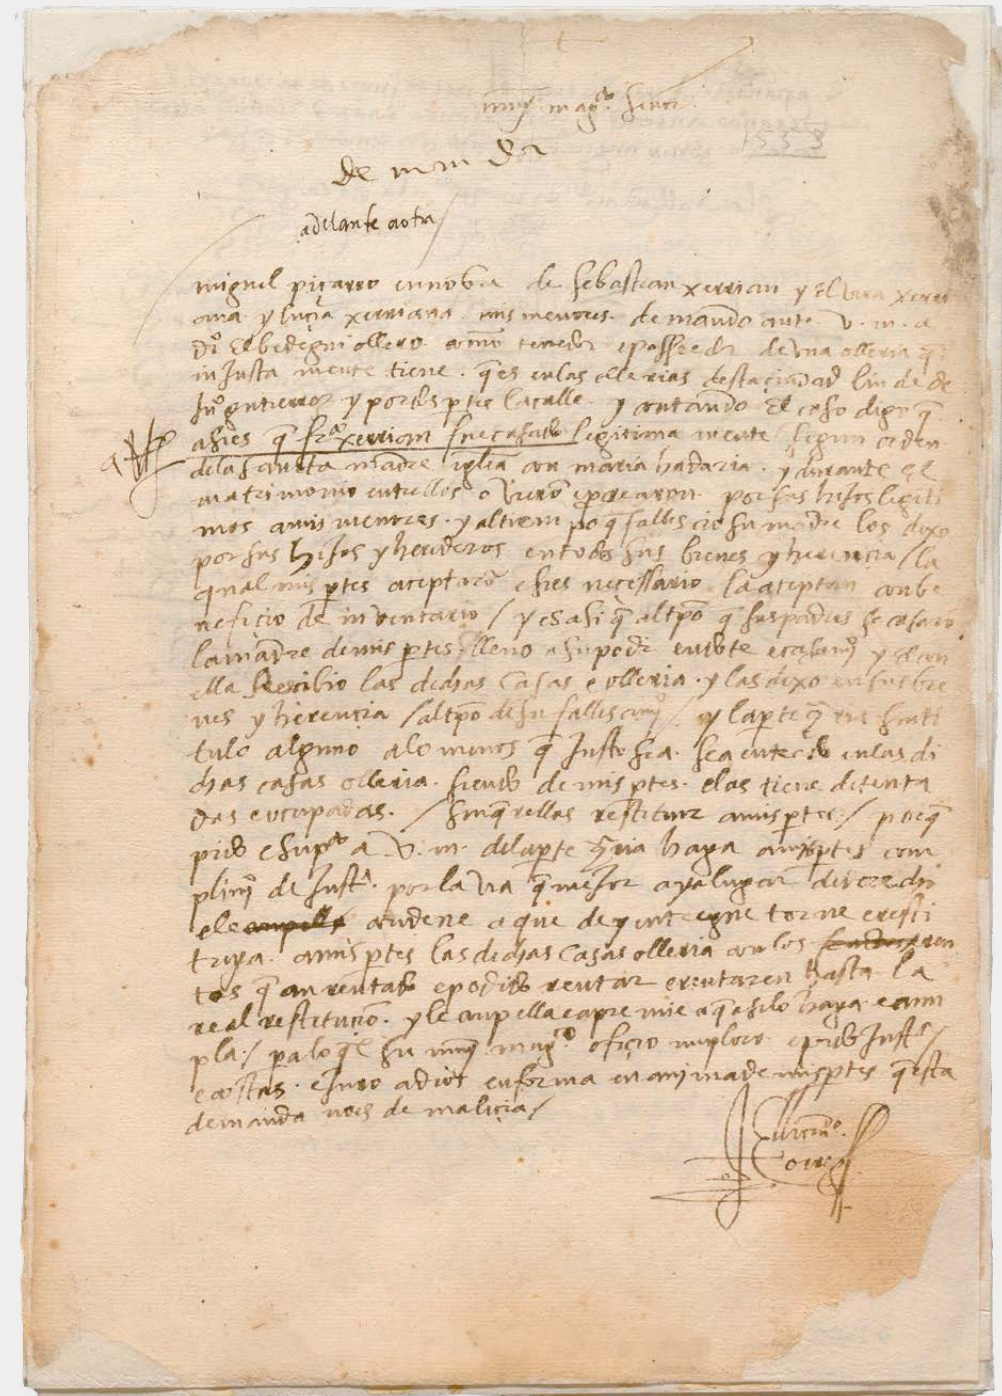 muy magco señor
1533
demanda
adelante aotra /
miguel piçarro en nobre de sebastian xerrian y Elvira xerri
ana y luçia xerriana mis menores demando ante v. m. a
dio El bedegni ollero como tenedor e posseedor de vna olleria q
inJusta mente tiene . ques en las ollerias desta ciudad linde de
Juo gutierrez y por dos ptes la calle y contando El caso digo q
asies q frco xerrian fue casado legitima mente segun orden
dela santa madre iglia con maria hadaria . y durante El
matrimonio entrellos o vieron e procrearon por sus hijos legiti
mos amis menores . y al tiempo q fallescio su madre los dexo
por sus hijos y herederos en todos sus bienes y herencia / la
qual mis ptes aceptaro e sies necessario la aceptan con be
neficio de inventario / y es asi q al tpo q sus padres se casaro
la madre de mis ptes lleuo a su poder en dote e casamio y con
ella Recibio las dichas casas e olleria . y las dexo en sus bie
nes y herencia / al tpo de su fallescimio / y la parte q sin ti
tulo alguno alo menos q Justo sea . sea entrado en las di
chas casas olleria . siendo de mis ptes . elas tiene detenta
das e ocupadas . / sin q rellas restituir amis partes / porq
pido e supco a v. m. dela parte haga amis ptes com
plimio de Justa . por la via q mejor aya lugar de derecho
ele condene a que de y entregue torne e resti
tuya . amis ptes las dichas casas olleria con los ren
tos q an rentado e podido rentar e rentaren hasta la
real restitucio . y le conpella e apremie a q asilo haga e cum
pla / para lo q su muy magco oficio inploro e pido Justa /
e costas . e Juro a dios en forma en anima de mis ptes q esta
demanda noes de malicia /